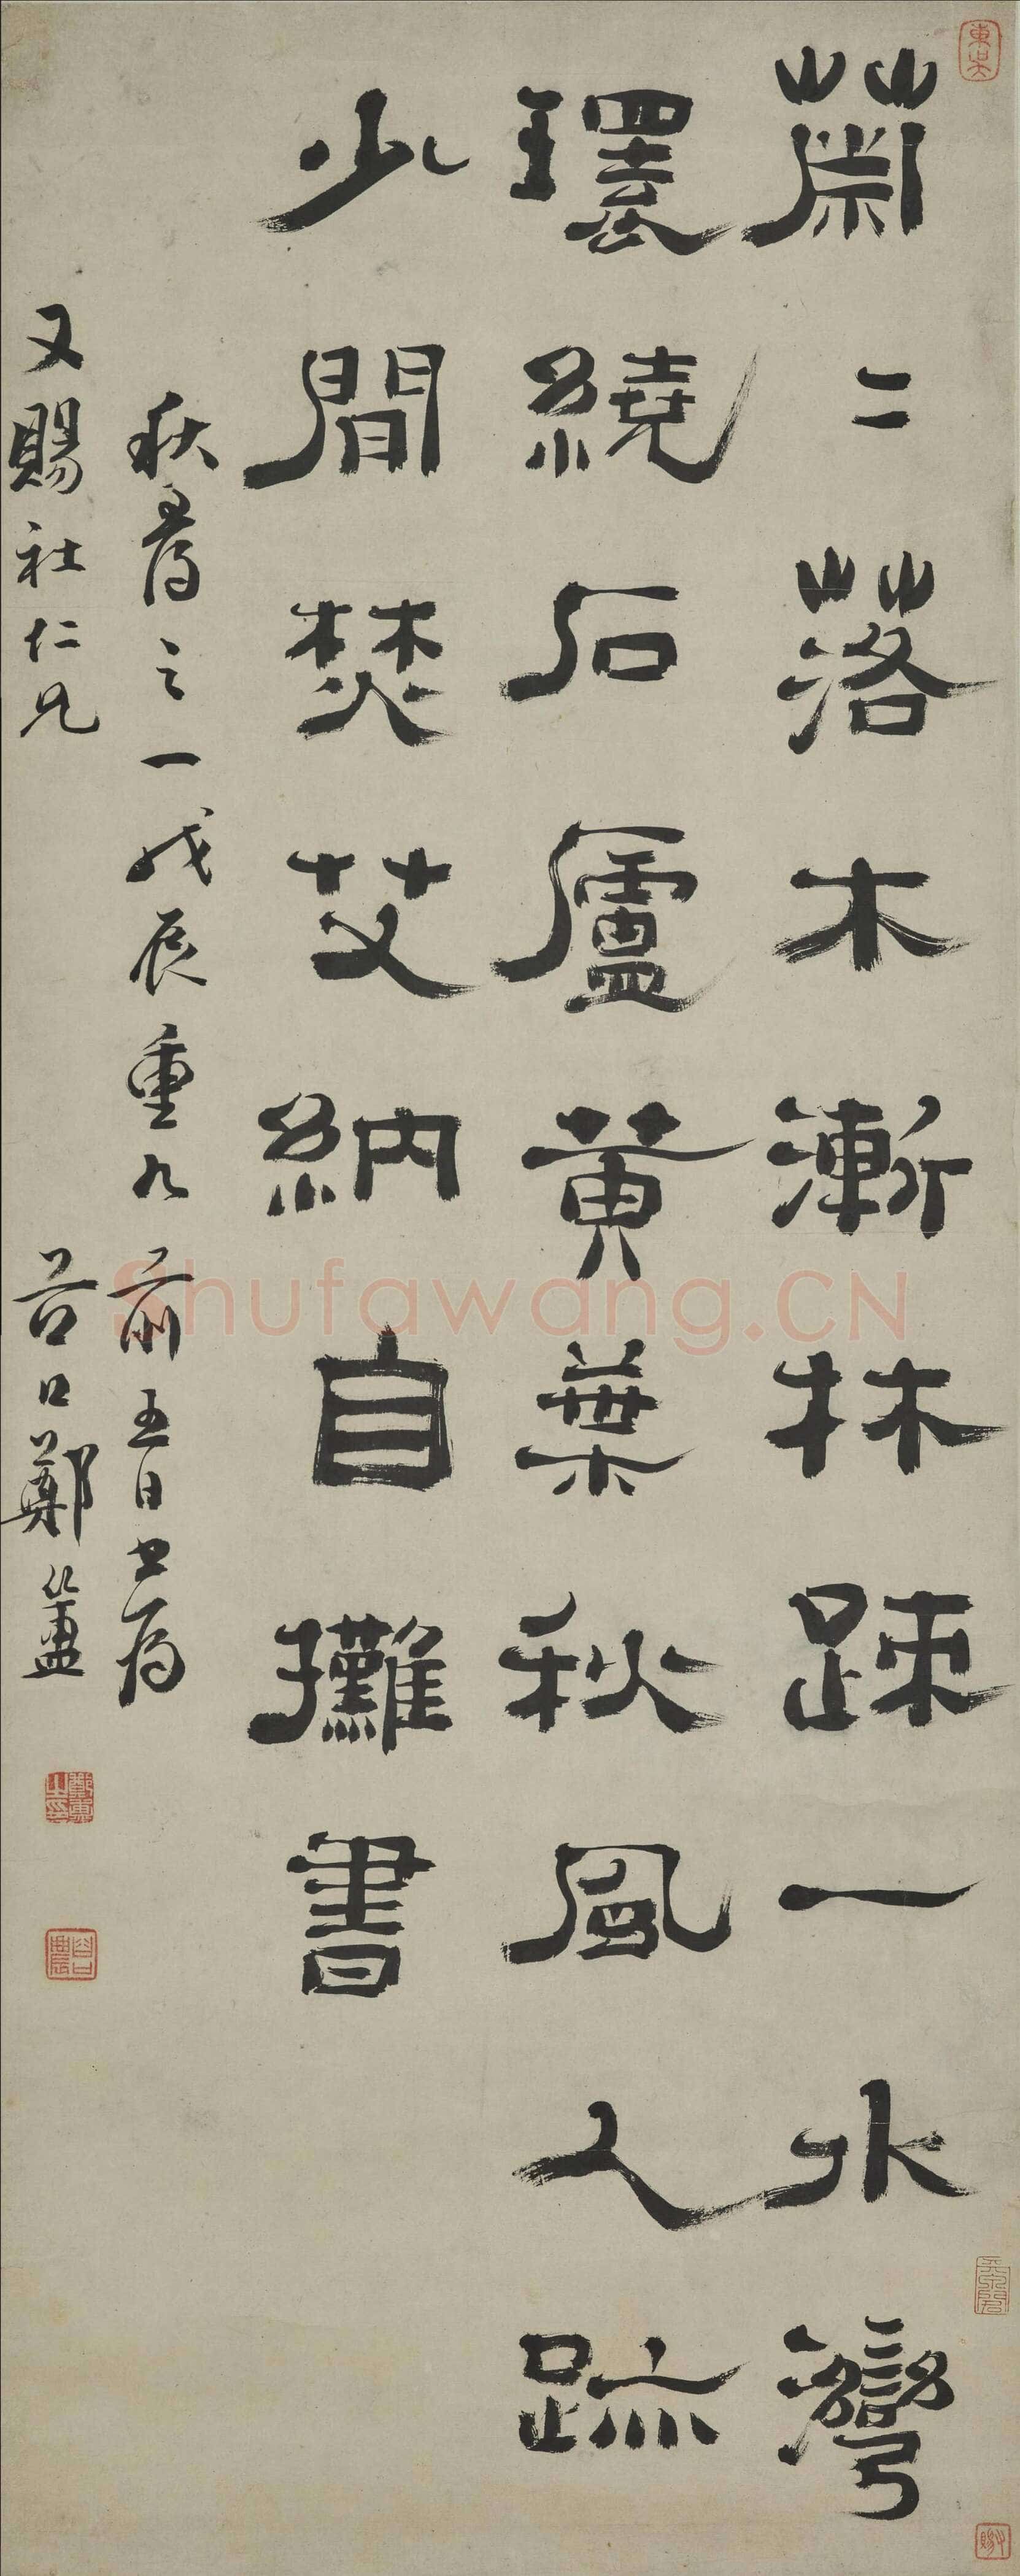 蕭二落木漸林踈一水灣
環繞石廬黄葉秋風人跡
少間焚艾納自攤書
秋暮之一戊辰重九前五日書為
又賜社仁兄 谷口鄭簠
Shufawang.CN
鄭簠之印
谷口農